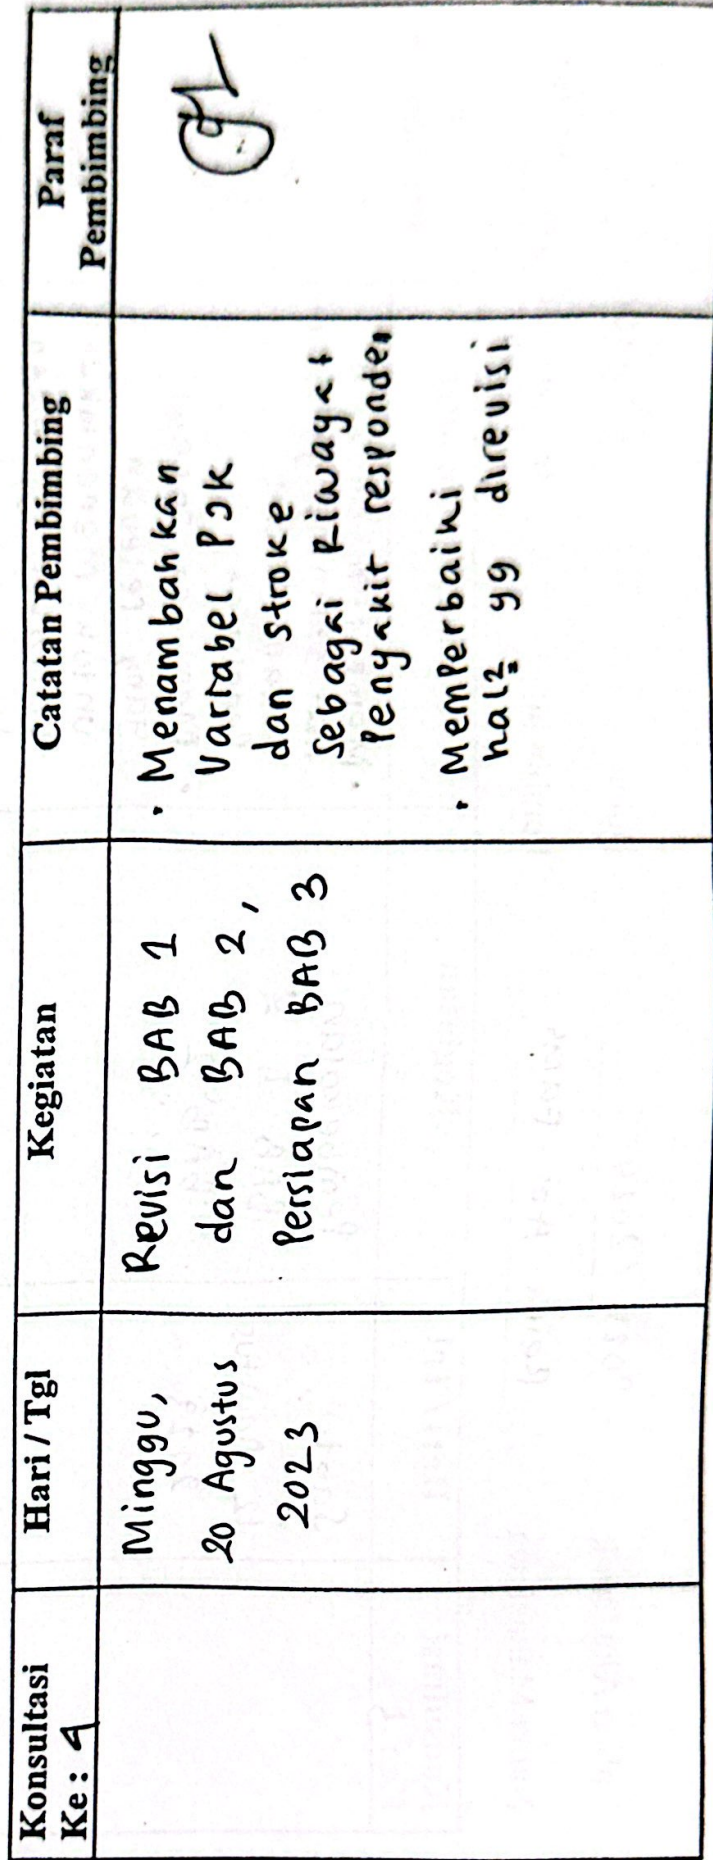 Konsultasi
Ke: 4
Hari / Tgl
Kegiatan
Catatan Pembimbing
Paraf
Pembimbing
Minggu,
20 Agustus
2023
Revisi BAB 1
dan BAB 2,
Persiapan BAB 3
• Menambahkan
Variabel PJK
dan stroke
Sebagai Riwayat
Penyakit responden
• Memperbaiki
hal2 yg direvisi